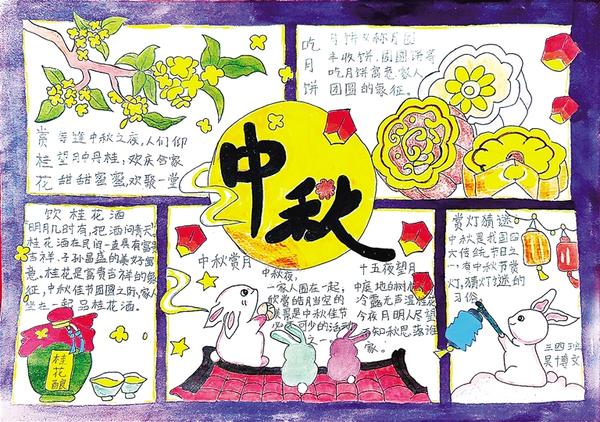 中秋
赏桂花
每逢中秋之夜,人们仰
望月中丹桂,欢庆合家
甜甜蜜蜜,欢聚一堂
吃月饼
月饼又称月团
丰收饼、团圆饼等
吃月饼寓意家人
团圆的象征。
饮桂花酒
明月几时有,把酒问青天
桂花酒在民间一直具有富
吉祥、子孙昌盛的美好寓
意。桂花是富贵吉祥的象
征,中秋佳节团圆之际,家人
坐在一起品桂花酒。
桂花酿
中秋赏月
中秋夜,
一家人围在一起,
欣赏皓月当空的
美景是中秋佳节
必不可少的活动
之一
十五夜望月
中庭地白树栖
冷露无声湿桂花
今夜月明人尽望
不知秋思落谁
家。
赏灯猜迷
中秋是我国四
大传统节日之
一,有中秋节赏
灯,猜灯迷的
习俗。
三四班
吴博文